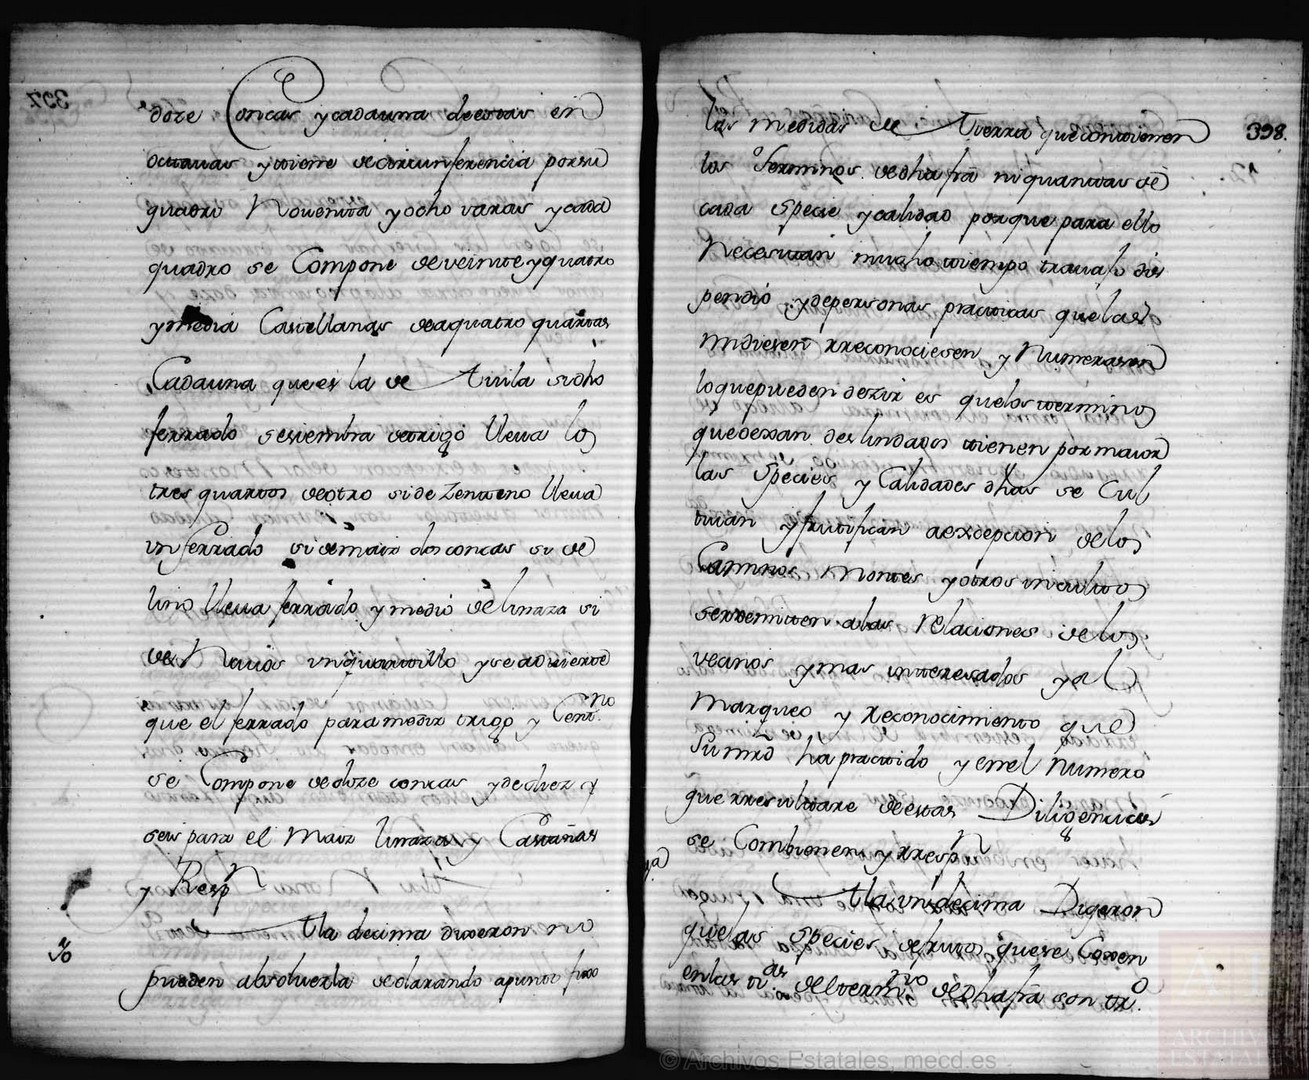 doze Concas y cada una de estas en
octauas y tiene de circunferencia por su
quadro Nouenta y ocho varas y cada
quadro se Compone de veinte y quatro
y media Castellanas de a quatro quartas
Cada una que es la de Auila dicho
ferrado se siembra de trigo lleua los
tres quartos de otro si de Zenteno lleua
un ferrado si de maiz dos concas si de
lino lleua ferrado y medio de linaza si
de Nauos un quartillo y se aduierte
que el ferrado para medir trigo y Centno
se Compone de doze concas y de diez y
seis para el Maiz linaza y Castañas
y Respn
10
A la decima dixeron no
pueden absoluerla declarando a punto fixo
398.
las medidas de tierra que contienen
los terminos de dha fra ni quantas de
cada specie y calidad porque para ello
Necesitan mucho tiempo trauajo dis
pendio y de personas practicas que las
midiesen rreconociesen y Numerasen
lo que pueden dezir es que los terminos
que dexan deslindados tienen por maior
las Species y Calidades dhas se Cul
tiuan y frutifican a exdepcion de los
Caminos Montes y otros incultos
se rremiten a las Relaciones de los
vecinos y mas interesados y al
Marqueo y Reconocimiento que
Su mrd ha practicado y en el Numero
que rresultare de estas Diligencias
se Combienen y rrespn
A la undecima Digeron
que las species de frutos que se Cogen
en las trras del termino de dha fra son tr
© Archivos Estatales, mecd.es
ARCHIVOS
ESTATALES